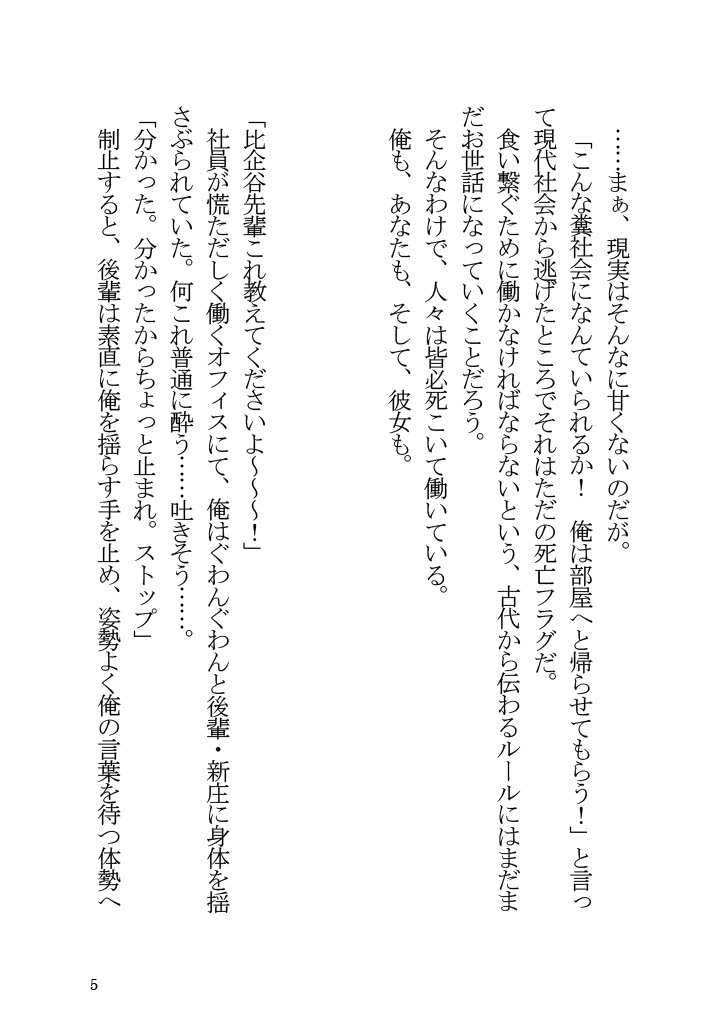 ……まぁ、現実はそんなに甘くないのだが。
「こんな糞社会になんていられるか！　俺は部屋へと帰らせてもらう！」と言っ
て現代社会から逃げたところでそれはただの死亡フラグだ。
食い繋ぐために働かなければならないという、古代から伝わるルールにはまだま
だお世話になっていくことだろう。
そんなわけで、人々は皆必死こいて働いている。
俺も、あなたも、そして、彼女も。
「比企谷先輩これ教えてくださいよ～～～！」
社員が慌ただしく働くオフィスにて、俺はぐわんぐわんと後輩・新庄に身体を揺
さぶられていた。何これ普通に酔う……吐きそう……。
「分かった。分かったからちょっと止まれ。ストップ」
制止すると、後輩は素直に俺を揺らす手を止め、姿勢よく俺の言葉を待つ体勢へ
5